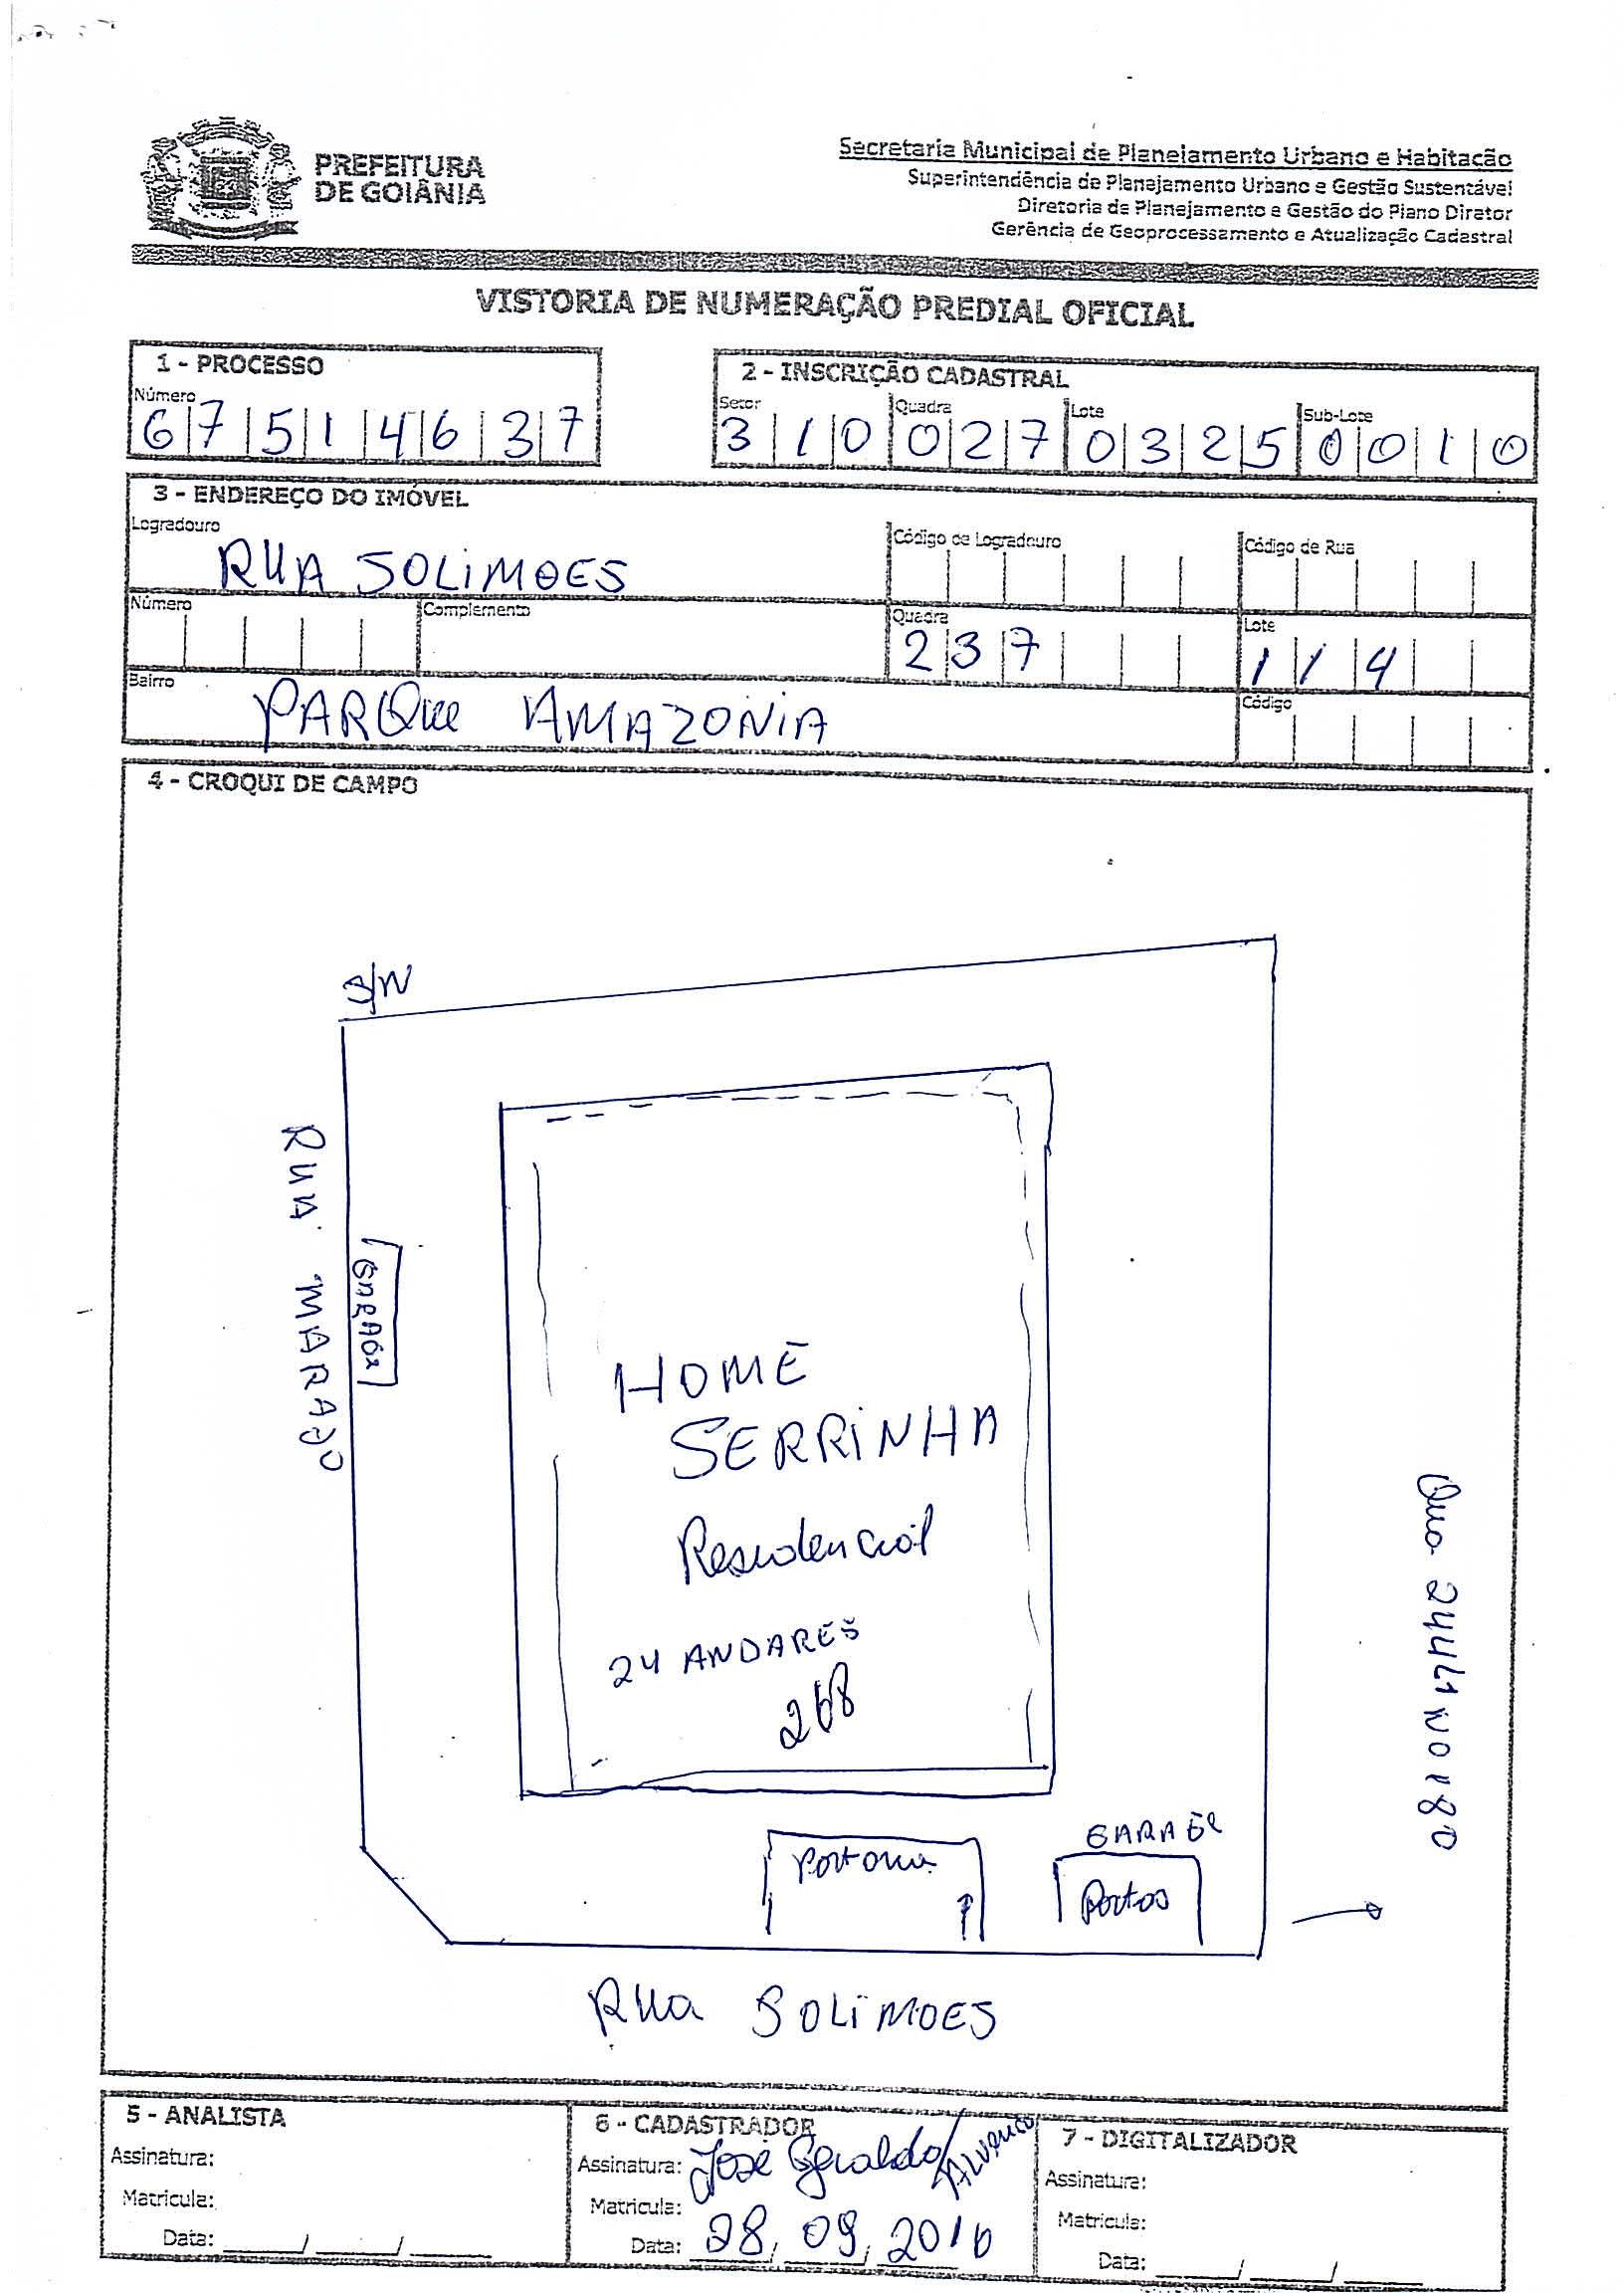 PREFEITURA
DE GOIÂNIA
Secretaria Municipal de Planejamento Urbano e Habitação
Superintendência de Planejamento Urbano e Gestão Sustentável
Diretoria de Planejamento e Gestão do Plano Diretor
Gerência de Geoprocessamento e Atualização Cadastral
VISTORIA DE NUMERAÇÃO PREDIAL OFICIAL
1 - PROCESSO
Número
6 7 5 1 4 6 3 7
2 - INSCRIÇÃO CADASTRAL
Setor Quadra Lote Sub-Lote
3 1 0 0 2 7 0 3 2 5 0 0 1 0
3 - ENDEREÇO DO IMÓVEL
Logradouro Código de Logradouro Código de Rua
RUA SOLIMOES
Número Complemento Quadra Lote
2 3 7 1 1 4
Bairro Código
PARQue AMAZONIA
4 - CROQUI DE CAMPO
S/N
RUA MARAJO
HOME
SERRINHA
Residencial
24 ANDARES
268
Portaria
Rua SOLIMOES
5 - ANALISTA
Assinatura:
Matricula:
Data: ___/___/___
6 - CADASTRADOR
Assinatura: José Geraldo/
Matricula:
Data: 28/09/2016
7 - DIGITALIZADOR
Assinatura:
Matricula:
Data: ___/___/___